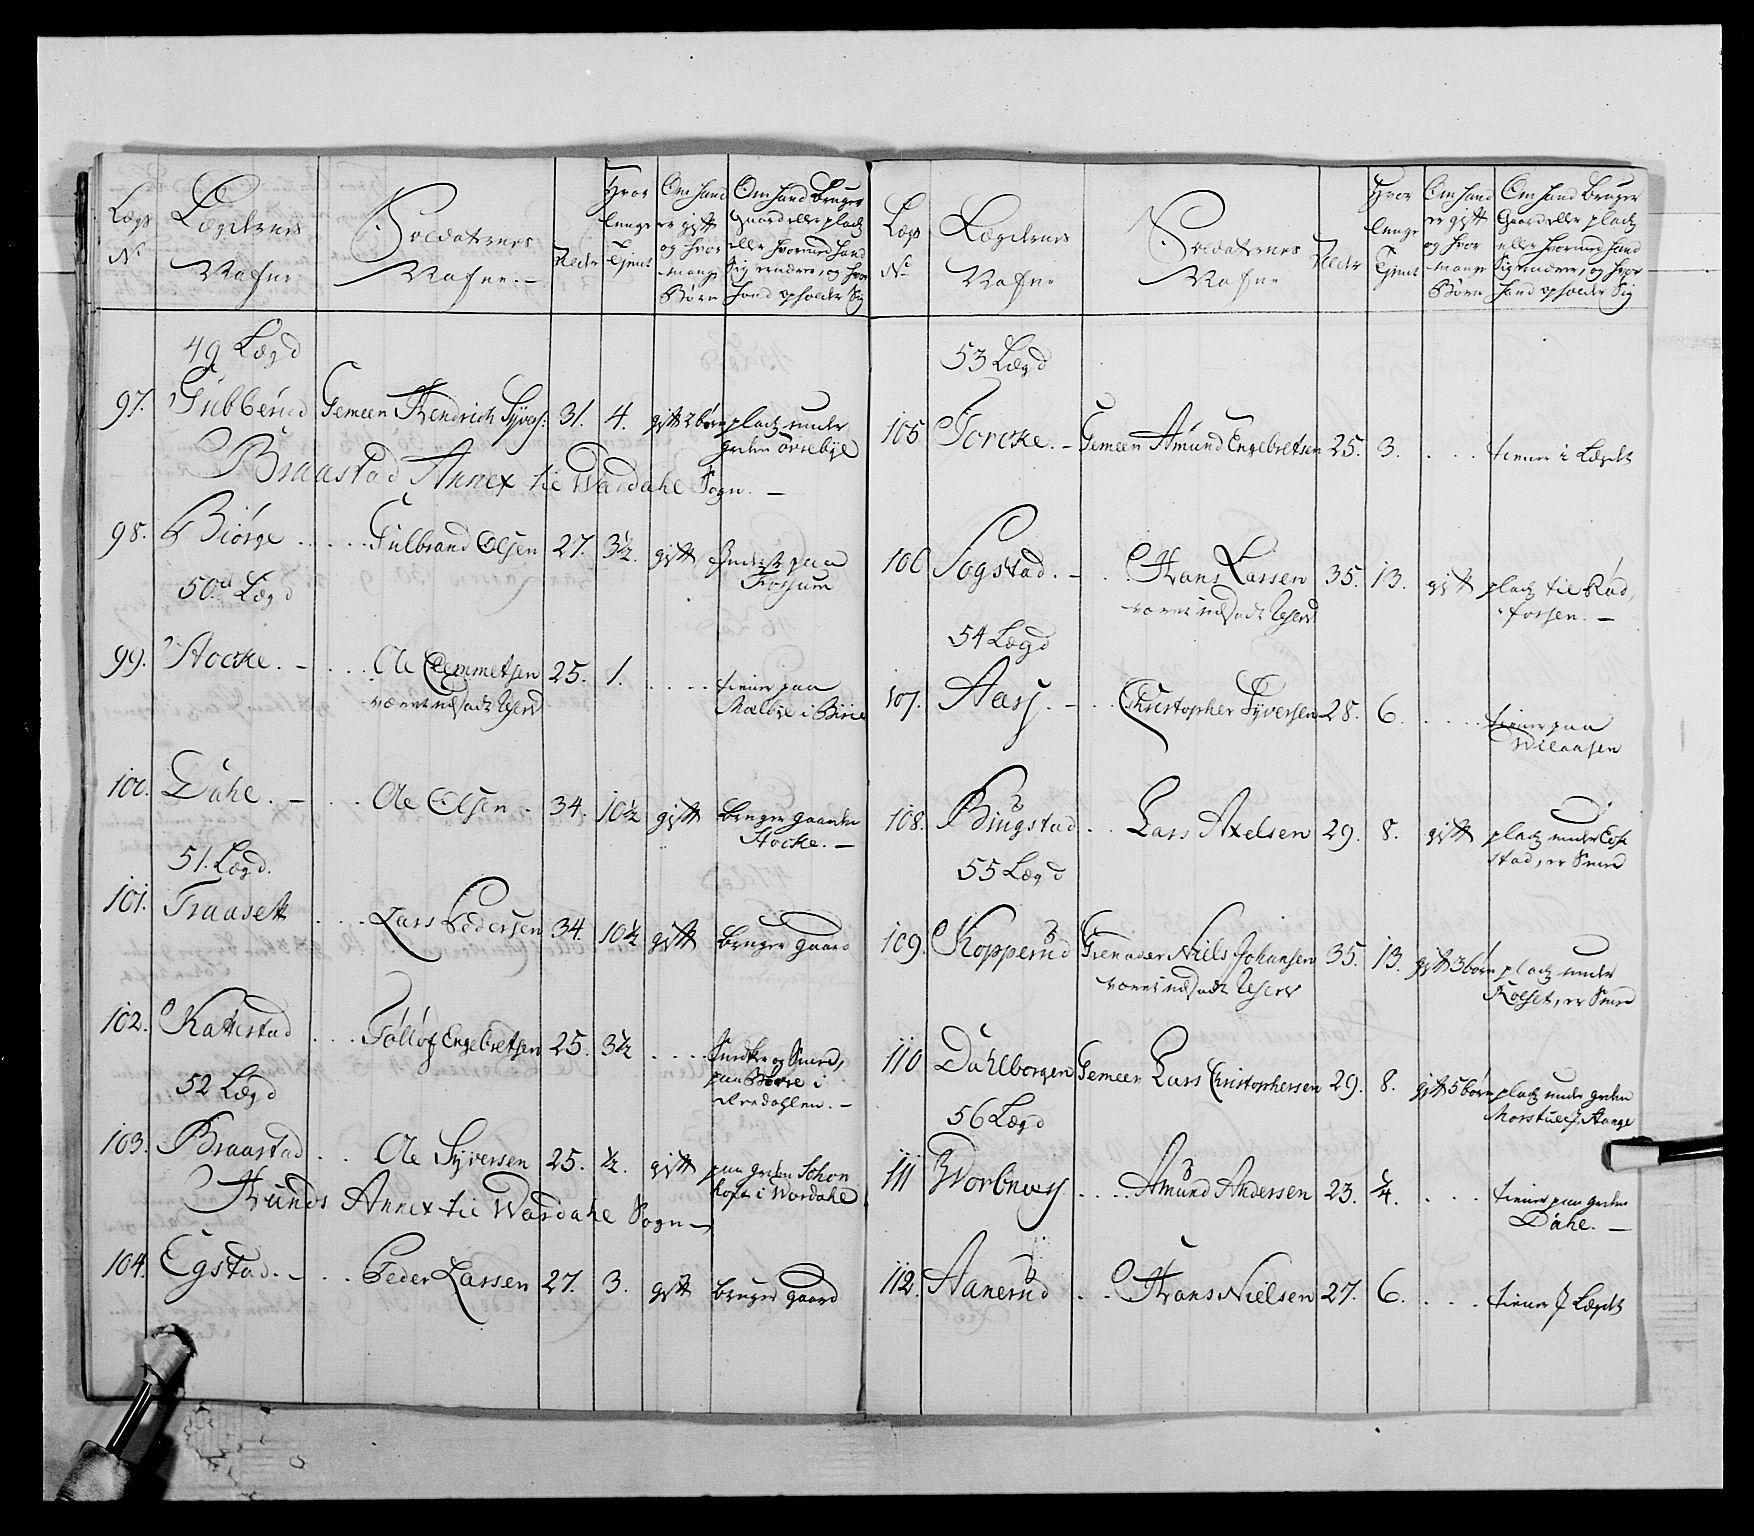 Lægs No. Lægdernes Nafne Soldaternes Nafne. Alder Hvor lenge Tjent Om hand er gift og hvor mange Børn Om hand bruger Gaard eller plads eller hvormed hand Sig ernærer, og hvor hand opholder Sig
49 Lægd
97. Gubberud Gemeen Hendrich Syvers: 31. 4. gift 2 børn plads under
Braastad Annex til Wardahl Sogn. -
98. Biørge . . . . . Gulbrand Olsen 27. 3½. gift Inderst paa
Fossum
50de Lægd
99. Hocke. - . . . Ole Clemmetsen 25. 1. . . . . . tiener paa
været udsadt Reserv
i Birie
100. Dahl. - . . . Ole Olsen . 34. 10½ gift bruger gaarden
Hocke. -
51. Lægd.
101. Fraasett . . . Lars Pedersen 34. 10½ gift bruger gaard
102. Kattestad . . . Tølløf Engebretsen 25. 3½ . . . . og Smed,
paa i
52 Lægd
103. Braastad . . Ole Syversen 25. ½. gift paa
i Wardahl
Hunds Annex til Wardahl Sogn -
104. Egstad. - . . . Peder Larsen 27. 3. gift bruger gaard
Lægs No. Lægdernes Nafne Soldaternes Nafne Alder Hvor lenge Tjent Om hand er gift og hvor mange Børn Om hand bruger Gaard eller plads eller hvormed hand Sig ernærer, og hvor hand opholder Sig
53 Lægd
105 Torcke. - Gemeen Amund Engebretsen 25. 3. . . . . tiener i Lægdet
106 Sogstad. - . . Hans Larsen 35. 13. gift plads til
været udsadt Reserv
54 Lægd
107. Aas. - . . . Christopher Syversen 28. 6. . . . . . tiener paa
108. Bingstad . . Lars Axelsen 29. 8. gift plads under
stad, er Smed
55 Lægd
109. Kopperud Grenader Niels Johansen 35. 13. gift 3 børn plads under
været udsadt Reserv
er Smed
110 Dahlborgen Gemeen Lars Christophersen 29. 8. gift 5 børn plads under
56 Lægd
111 . . . . Amund Andersen 23. ¼. . . . . tiener paa
Dahl. -
112. Aanerud . . Hans Nielsen 27. 6. . . . . tiener i Lægdet